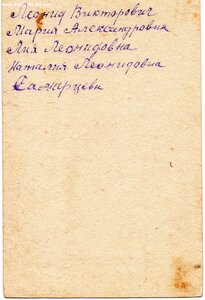 Леонид Викторович
Мария Александровна
Лия Леонидовна
Наталия Леонидовна